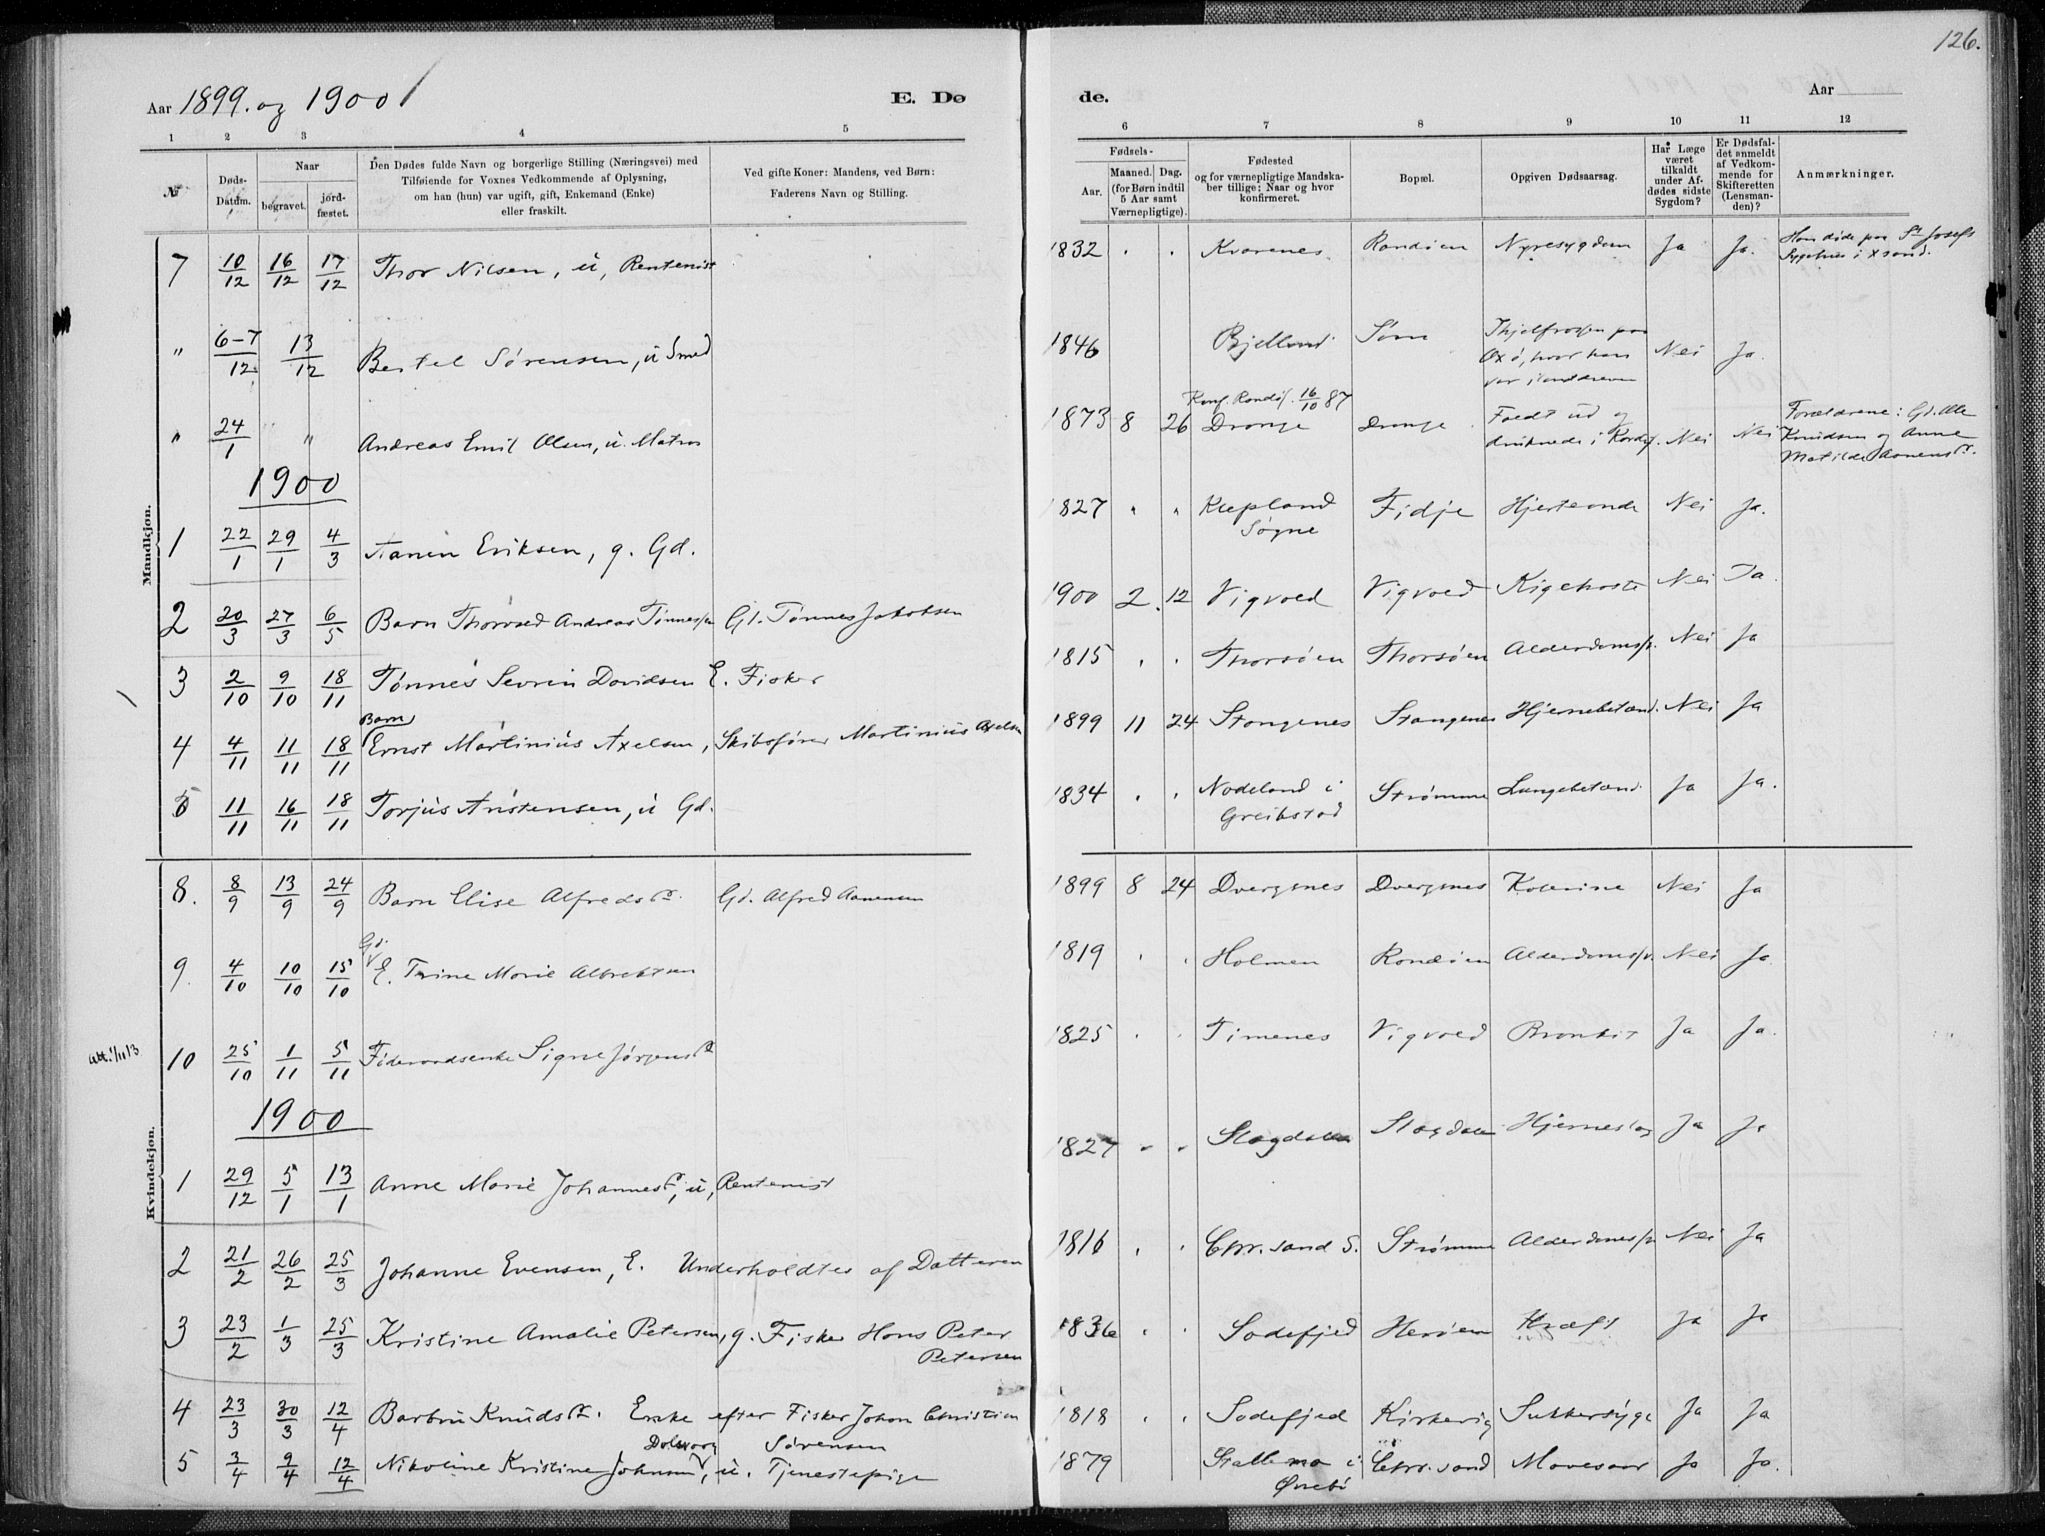 126.
Aar 1899. og 1900
E. Dø
de.
Aar
1 2 3 4 5 6 7 8 9 10 11 12
№
Døds-Datum.
Naar
begravet.
jord-fæstet.
Den Dødes fulde Navn og borgerlige Stilling (Næringsvei) med
Tilføiende for Voxnes Vedkommende af Oplysning,
om han (hun) var ugift, gift, Enkemand (Enke)
eller fraskilt.
Ved gifte Koner: Mandens, ved Børn:
Faderens Navn og Stilling.
Fødsels-
Aar.
Maaned. Dag.
(for Børn indtil
5 Aar samt
Værnepligtige).
Fødested
og for værnepligtige Mandska-
ber tillige: Naar og hvor
konfirmeret.
Bopæl.
Opgiven Dødsaarsag.
Har Læge
været
tilkaldt
under Af-
dødes sidste
Sygdom?
Er Dødsfal-
det anmeldt
af Vedkom-
mende for
Skifteretten
(Lensman-
den)?
Anmærkninger.
Mandkjøn.
7 10/12 16/12 17/12 Thor Nilsen, u, Rentenist 1832 . . Kvarenes Randøen Nyresygdom Ja Ja. Han døde paa St Josefs
Sygehus i Xsand.
" 6-7/12 13/12 Bertel Sørensen, u Smed 1846 Bjelland Søm Ihjelfrossen paa
Oxø, hvor han
var Nei Ja.
" 24/1 " Andreas Emil Olsen, u. Matros 1873 8 26 Konf. Randøs. 16/10 87
Drange Drange Faldt ud og
druknede i Nei Nei Forældrene: Gd. Ole
Knudsen og Anne
Matilde Aanensd.
1900
1 22/1 29/1 4/3 Tanin Eriksen, g. Gd. 1827 " " Klepland
Søgne Fidje Hjerteonde Nei Ja.
2 20/3 27/3 6/5 Barn Thorvald Andreas Tønnessen Gd. Tønnes Jakobsen 1900 2 12 Vigvold Vigvold Kigehoste Nei Ja
3 2/10 9/10 18/11 Tønnes Sevrin Davidsen E. Fisker 1815 . . Thorsøen Thorsøen Alderdomssv. Nei Ja
4 4/11 11/11 18/11 Barn
Ernst Martinius Axelsen, Skibsfører Martinius Axelsen 1899 11 24 Stangenes Stangenes Hjernebetænd. Nei Ja
5 11/11 16/11 18/11 Torjus Aristensen, u Gd. 1834 . . Nodeland i
Greibstad Strømme Lungebetænd. Ja Ja.
Kvindekjøn.
8. 8/9 13/9 24/9 Barn Elise Alfredsd. Gd. Alfred Aanensen 1899 8 24 Dvergsnes Dvergsnes Kolerine Nei Ja
9. 4/10 10/10 15/10 Gd.
E. Trine Marie Albretsen 1819 . . Holmen Randøen Alderdomssv. Nei Ja
10 25/10 1/11 5/11 Føderaadsenke Signe Jørgensd. 1825 . . Timenes Vigvold Bronkit Ja Ja.
1900
1 29/12 5/1 13/1 Anne Marie Johannesd., u, Rentenist 1827 . . Slagdalen Slagdalen Hjerneslag Ja Ja
2 21/2 26/2 25/3 Johanne Evensen, E. Underholdtes af Datteren 1816 . . Chr.sand S. Strømme Alderdomssv Nei Ja
3 23/2 1/3 25/3 Kristine Amalie Petersen, g. Fisker Hans Peter
Petersen 1836 . . Sodefjed Herøen Kræft Ja Ja
4 23/3 30/3 12/4 Barbru Knudsd. Enke efter Fisker Johan Christian
Sørensen 1818 . . Sodefjed Kirkevig Sukkersyge Ja Ja
5 3/4 9/4 12/4 Nikoline Kristine Johnsen Dolsvaag, u. Tjenestepige 1879 Stallemo i
Øvrebø Chr.sand Mavesaar Ja Ja.